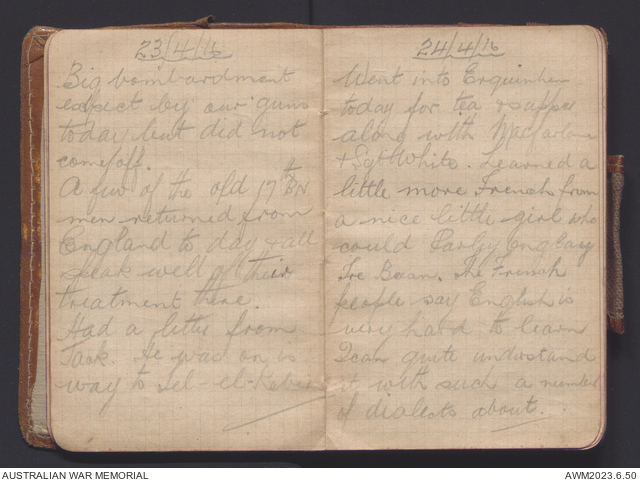 23/4/16
Big bombardment
expect by our guns
today but did not
come off.
A few of the old 17th BN
men returned from
England to day & all
speak well of their
treatment there.
Had a letter from
Jack. He was on is
way to Tel-el-Kebir
24/4/16
Went into Erquinhem
today for tea & supper
along with Macfarlane
& Sgt White. Learned a
little more French from
a nice little girl who
could Parley englay
Tre Bean. The French
people say English is
very hard to learn
I can quite understand
it with such a number
of dialects about.
AUSTRALIAN WAR MEMORIAL
AWM2023.6.50